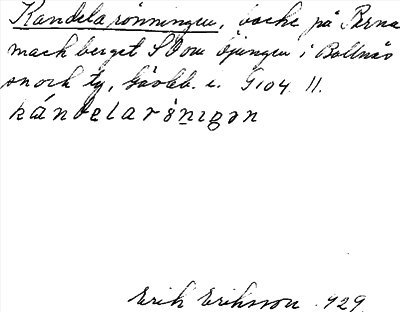 Kandelarönningen, backe på Perna
mack berget S Dom bjungen i Bollnäs
snock tg, Gävlb. l. G104 11.
kándelarönıŋən
Erik Eriksson 1929